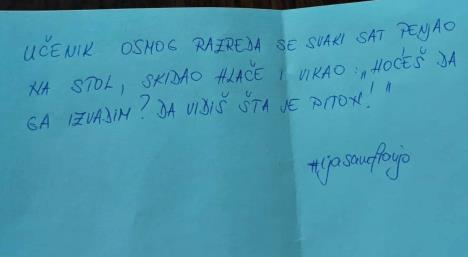 UČENIK OSMOG RAZREDA SE SVAKI SAT PENJAO
NA STOL, SKIDAO HLAČE I VIKAO: „HOĆEŠ DA
GA IZVADIM? DA VIDIŠ ŠTA JE PITON!"
#ijasamftovjo